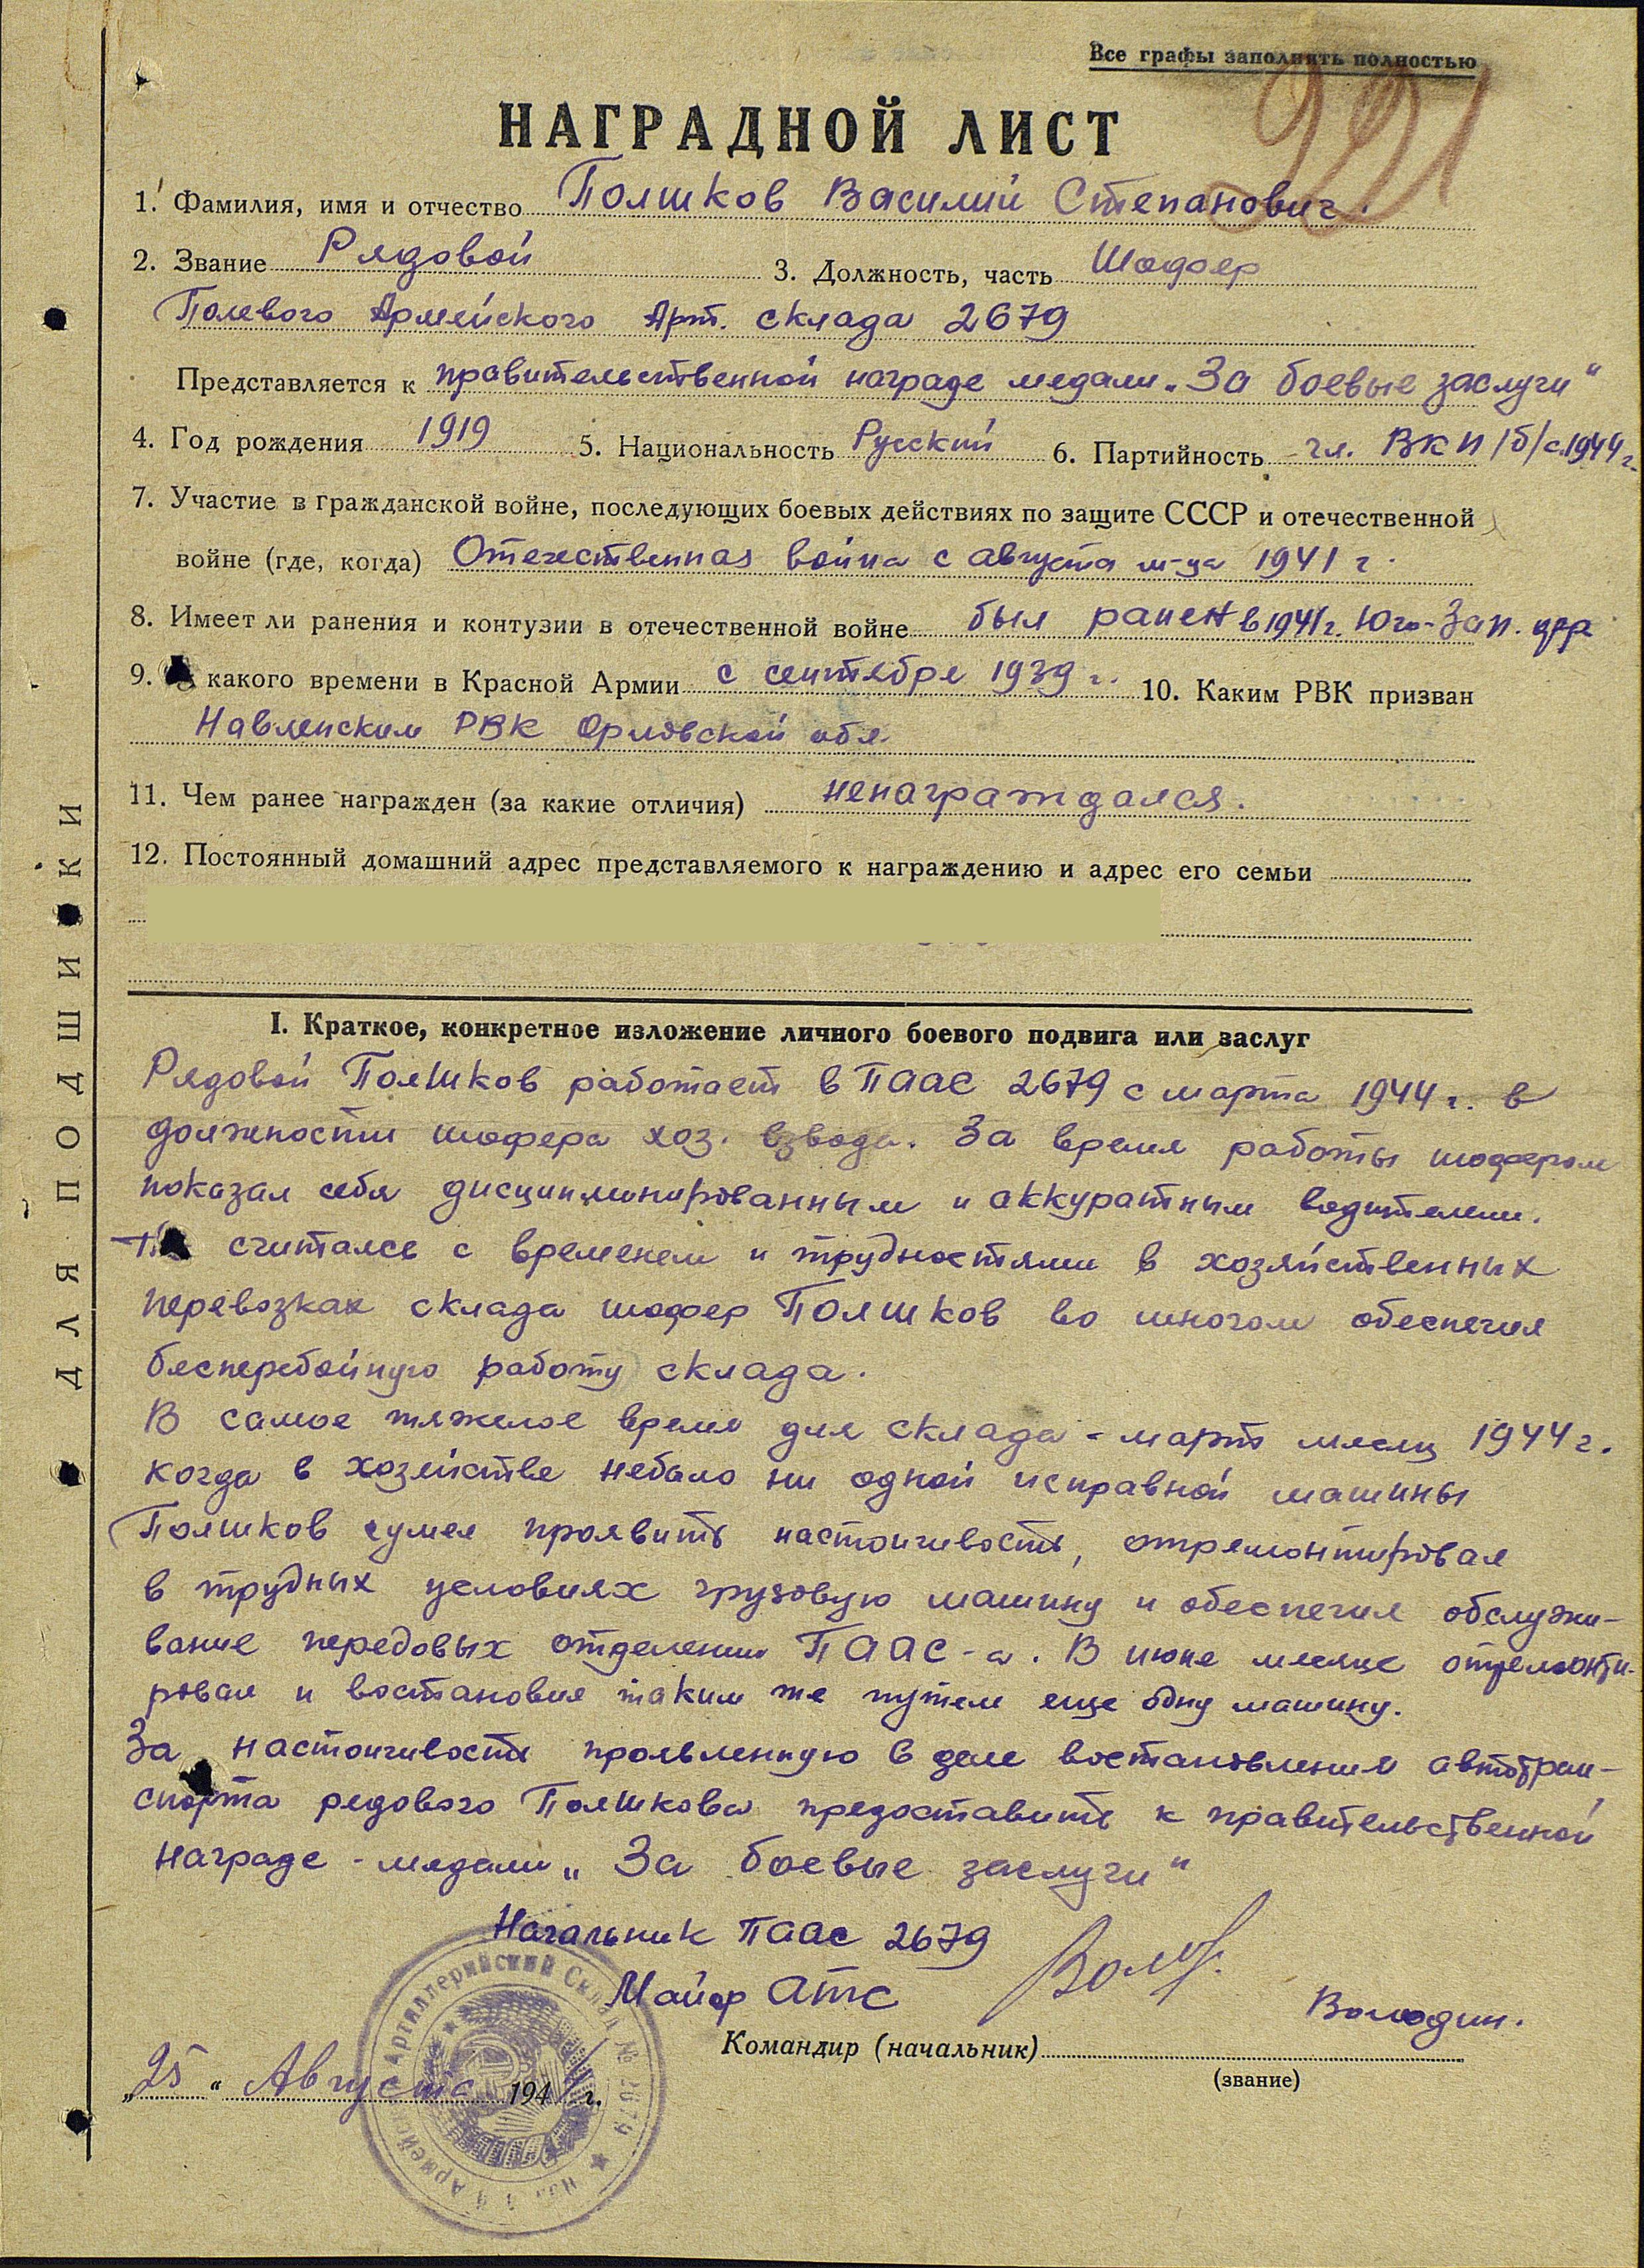 Все графы заполнять полностью
221
НАГРАДНОЙ ЛИСТ
1. Фамилия, имя и отчество Поляшков Василий Степанович.
2. Звание Рядовой 3. Должность, часть Шофер
Полевого Армейского Арт. склада 2679
Представляется к правительственной награде медали „За боевые заслуги"
4. Год рождения 1919 5. Национальность Русский 6. Партийность чл. ВКП/б/ с 1944 г.
7. Участие в гражданской войне, последующих боевых действиях по защите СССР и отечественной
войне (где, когда) Отечественная война с августа м-ца 1941 г.
8. Имеет ли ранения и контузии в отечественной войне был ранен в 1941 г. Юго-Зап. фр
9. какого времени в Красной Армии с сентября 1939 г. 10. Каким РВК призван
Навлинским РВК Орловской обл.
11. Чем ранее награжден (за какие отличия) ненаграждался.
12. Постоянный домашний адрес представляемого к награждению и адрес его семьи
I. Краткое, конкретное изложение личного боевого подвига или заслуг
Рядовой Поляшков работает в ПААС 2679 с марта 1944 г. в
должности шофера хоз. взвода. За время работы шофером
показал себя дисциплинированным и аккуратным водителем.
считаясь с временем и трудностями в хозяйственных
перевозках склада шофер Поляшков во многом обеспечил
бесперебойную работу склада.
В самое тяжелое время для склада - март месяц 1944 г.
когда в хозяйстве небыло ни одной исправной машины
Поляшков сумел проявить настойчивость, отремонтировал
в трудных условиях грузовую машину и обеспечил обслужи-
вание передовых отделении ПААС-а. В июне месяце отремонти-
ровал и востановил таким же путем еще одну машину.
За настойчивость проявленную в деле востановления автотран-
спорта рядового Поляшкова предоставить к правительственной
награде - медали „За боевые заслуги"
Начальник ПААС 2679
Майор АТС Володин.
Командир (начальник)
(звание)
„25" Августа 1944 г.
Артиллерийский Склад № 2679
ДЛЯ ПОДШИВКИ